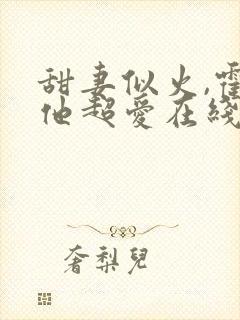 甜妻似火,霍
他超愛在綫
奢梨兒